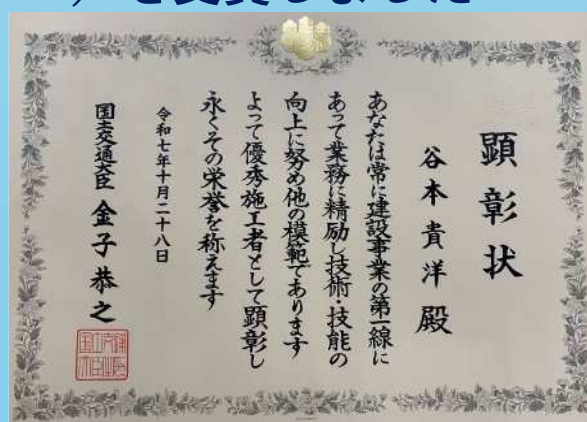 を受賞しました
顕彰状
谷本貴洋殿
あなたは常に建設事業の第一線に
あって業務に精励し技術・技能の
向上に努め他の模範であります
よって優秀施工者として顕彰し
永くその栄誉を称えます
令和七年十月二十八日
国土交通大臣 金子恭之